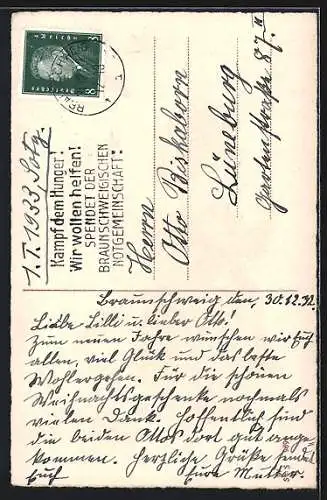 DEUTSCHES REICH
8 8
1. I. 1933, Sotg.
Kampf dem Hunger!
Wir wollen helfen!
SPENDET DER
BRAUNSCHWEIGISCHEN
NOTGEMEINSCHAFT!
Herrn
Otto Biskaborn
Lüneburg
Gartenstraße 87.II
Braunschweig den, 30.12.32.
Liebe Lilli u. lieber Otto!
Zum neuen Jahre wünschen wir Euch
allen, viel Glück und das beste
Wohlergehen. Für die schönen
Weihnachtsgeschenke nochmals
vielen Dank. Hoffentlich sind
die beiden Ottos dort gut ange-
kommen. Herzliche Grüße sendet
Euch Eure Mutter.